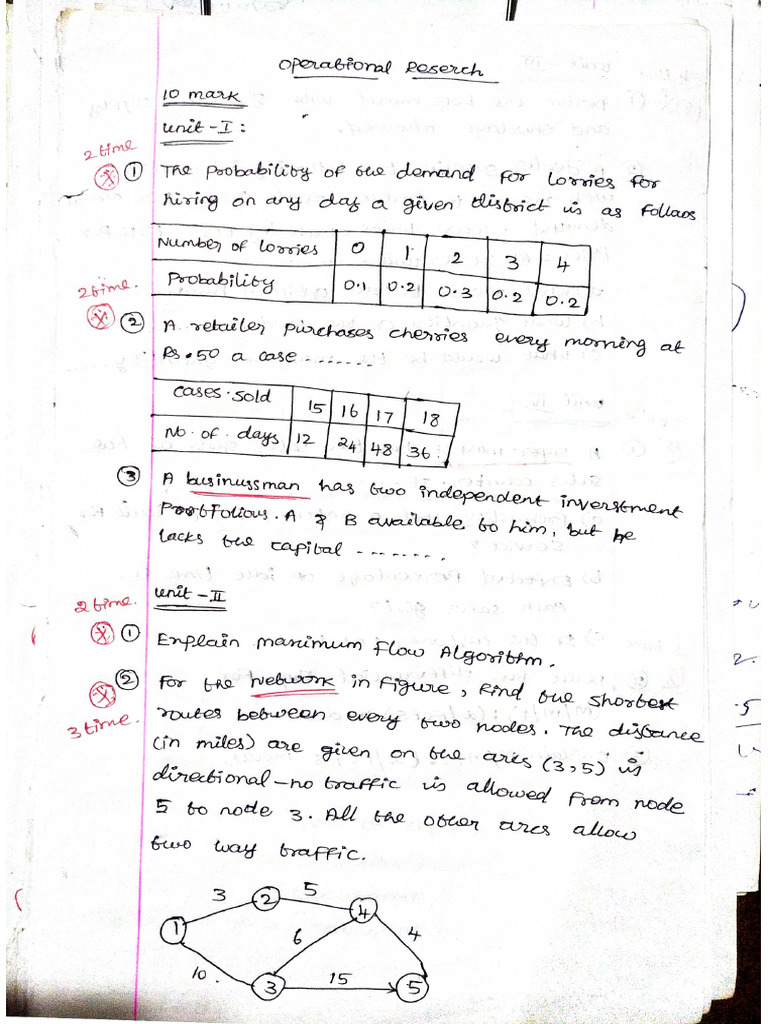 Operational Reserch
10 mark
Unit-I:
2 time
① The Probability of the demand for lorries for
hiring on any day a given district is as follaos
Number of lorries 0 1 2 3 4
Probability 0.1 0.2 0.3 0.2 0.2
2 time.
② A retailer purchases cherries every morning at
Rs.50 a case .......
cases.sold 15 16 17 18
No. of. days 12 24 48 36
③ A businussman has two independent inverstment
Portfolious. A & B available to him, but he
lacks the capital ........
2 time.
Unit-II
① Explain maximum Flow Algorithm.
② For the Network in figure, find the shortest
3 time.
routes between every two nodes. The distance
(in miles) are given on the arcs (3,5) is
directional-no traffic is allowed from node
5 to node 3. All the other arcs allow
two way traffic.
3 2 5 4
1 6 4
10. 3 15 5